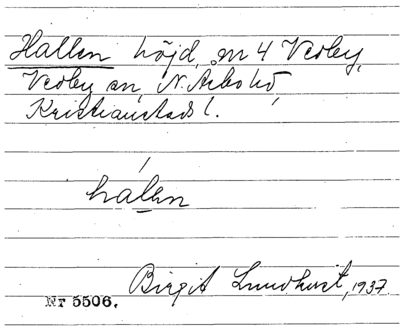 Hallen höjd, m 4 Verby,
Verby sn, N. Åsbo hd,
Kristianstads l.
hálen
Birgit Lundkvist, 1937.
Nr 5506.